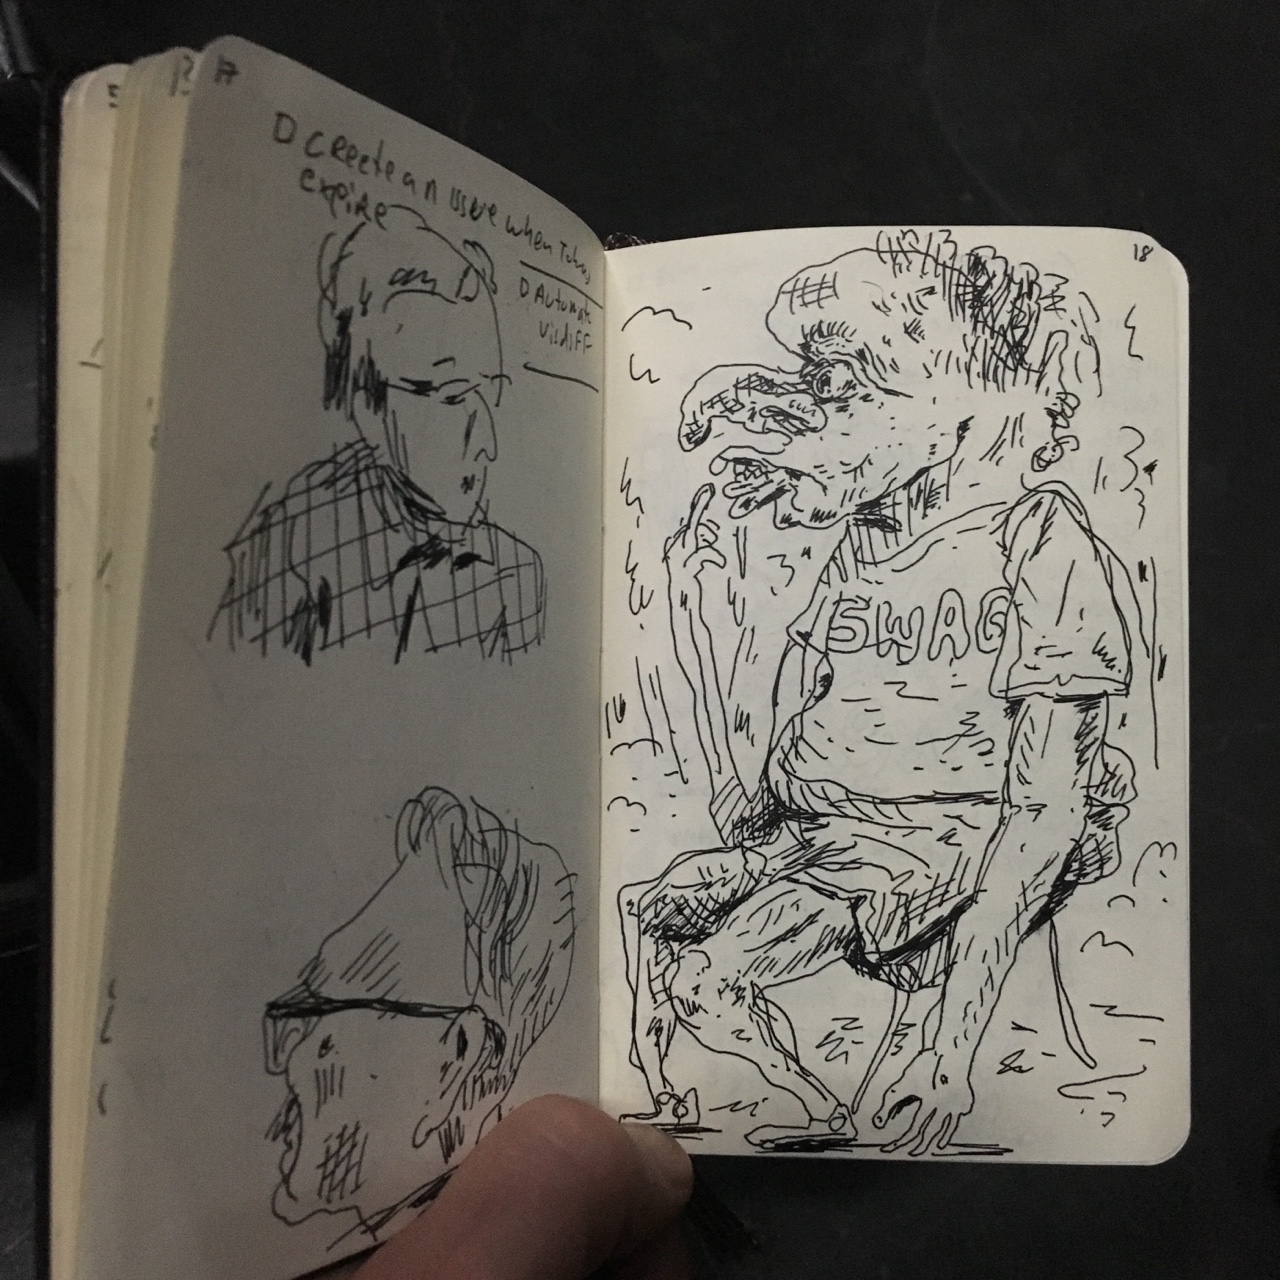 17
D Create an issue when Tokens
expire
D Automate
visdiff
18
SWAG